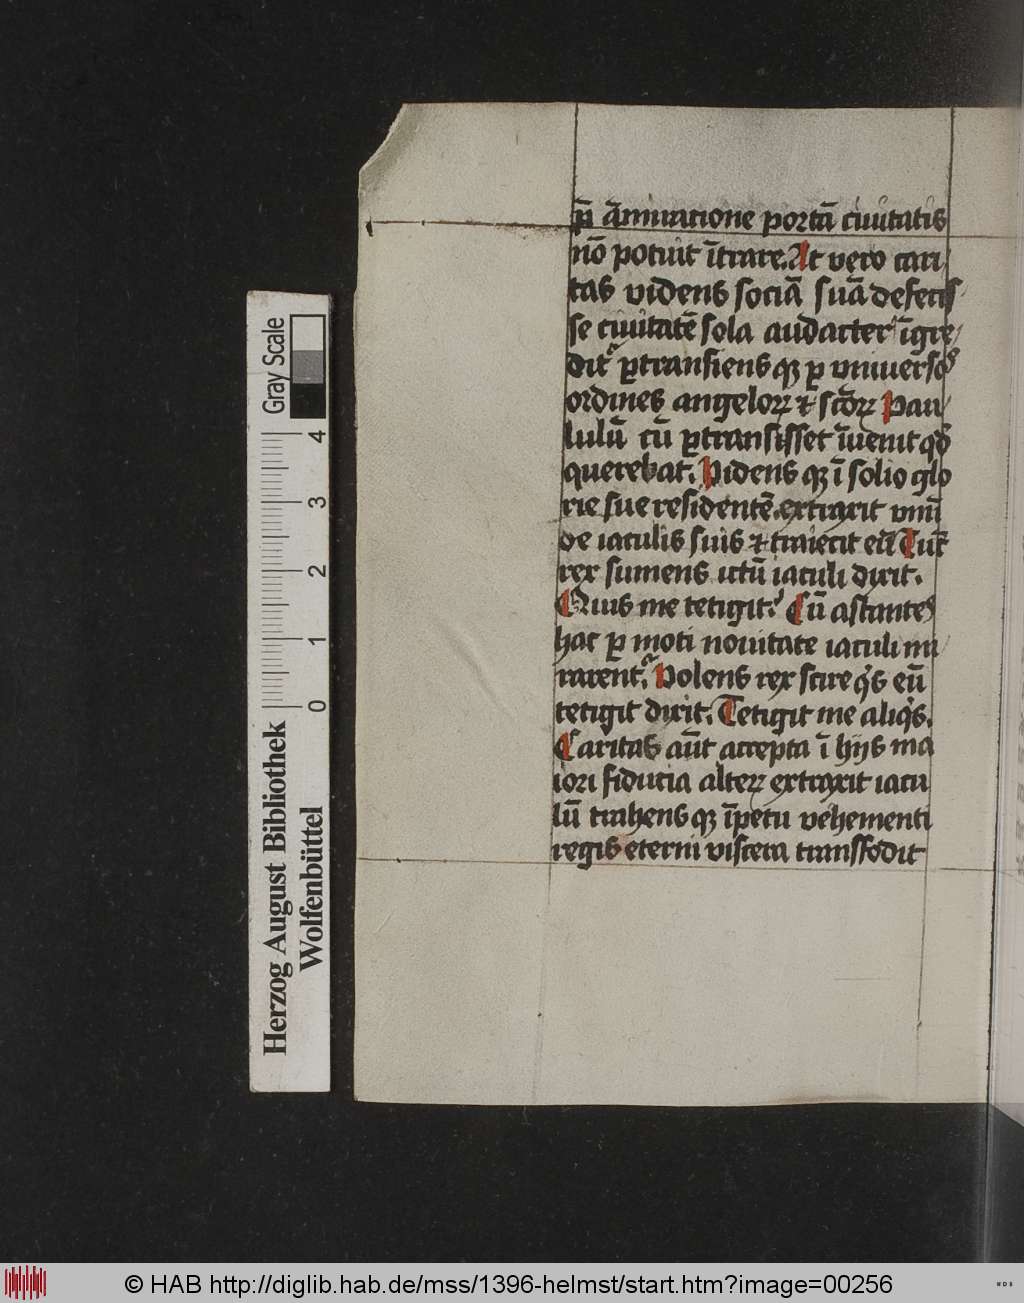 p̄ āmiratione portā ciuitatis
nō potuit ītrare. At vero cari
tas videns sociā suā defecis
se ciuitatē sola audacter īgre
ditʳ ꝑtransiens qꝫ ꝑ vniuersos
ordines angeloꝝ ⁊ scōꝝ Pau
lulū cū ꝑtransisset īuenit qd̄
querebat. Videns qꝫ ī solio glo
rie sue residentē extraxit vnū
de iaculis suis ⁊ traiecit eū Tūc
rex sumens ictū iaculi dixit.
Quis me tetigit? Cū astantes
hac ꝑ moti nouitate iaculi mi
rarentʳ. Volens rex scire qͥs eū
tetigit dixit. Tetigit me aliqͥs.
Caritas aūt accepta ī hijs ma
iori fiducia alteꝝ extraxit iacu
lū trahens qꝫ īpetu vehementi
regis eterni viscera transfodit
Gray Scale
4
3
2
1
0
Herzog August Bibliothek
Wolfenbüttel
© HAB http://diglib.hab.de/mss/1396-helmst/start.htm?image=00256
WDB